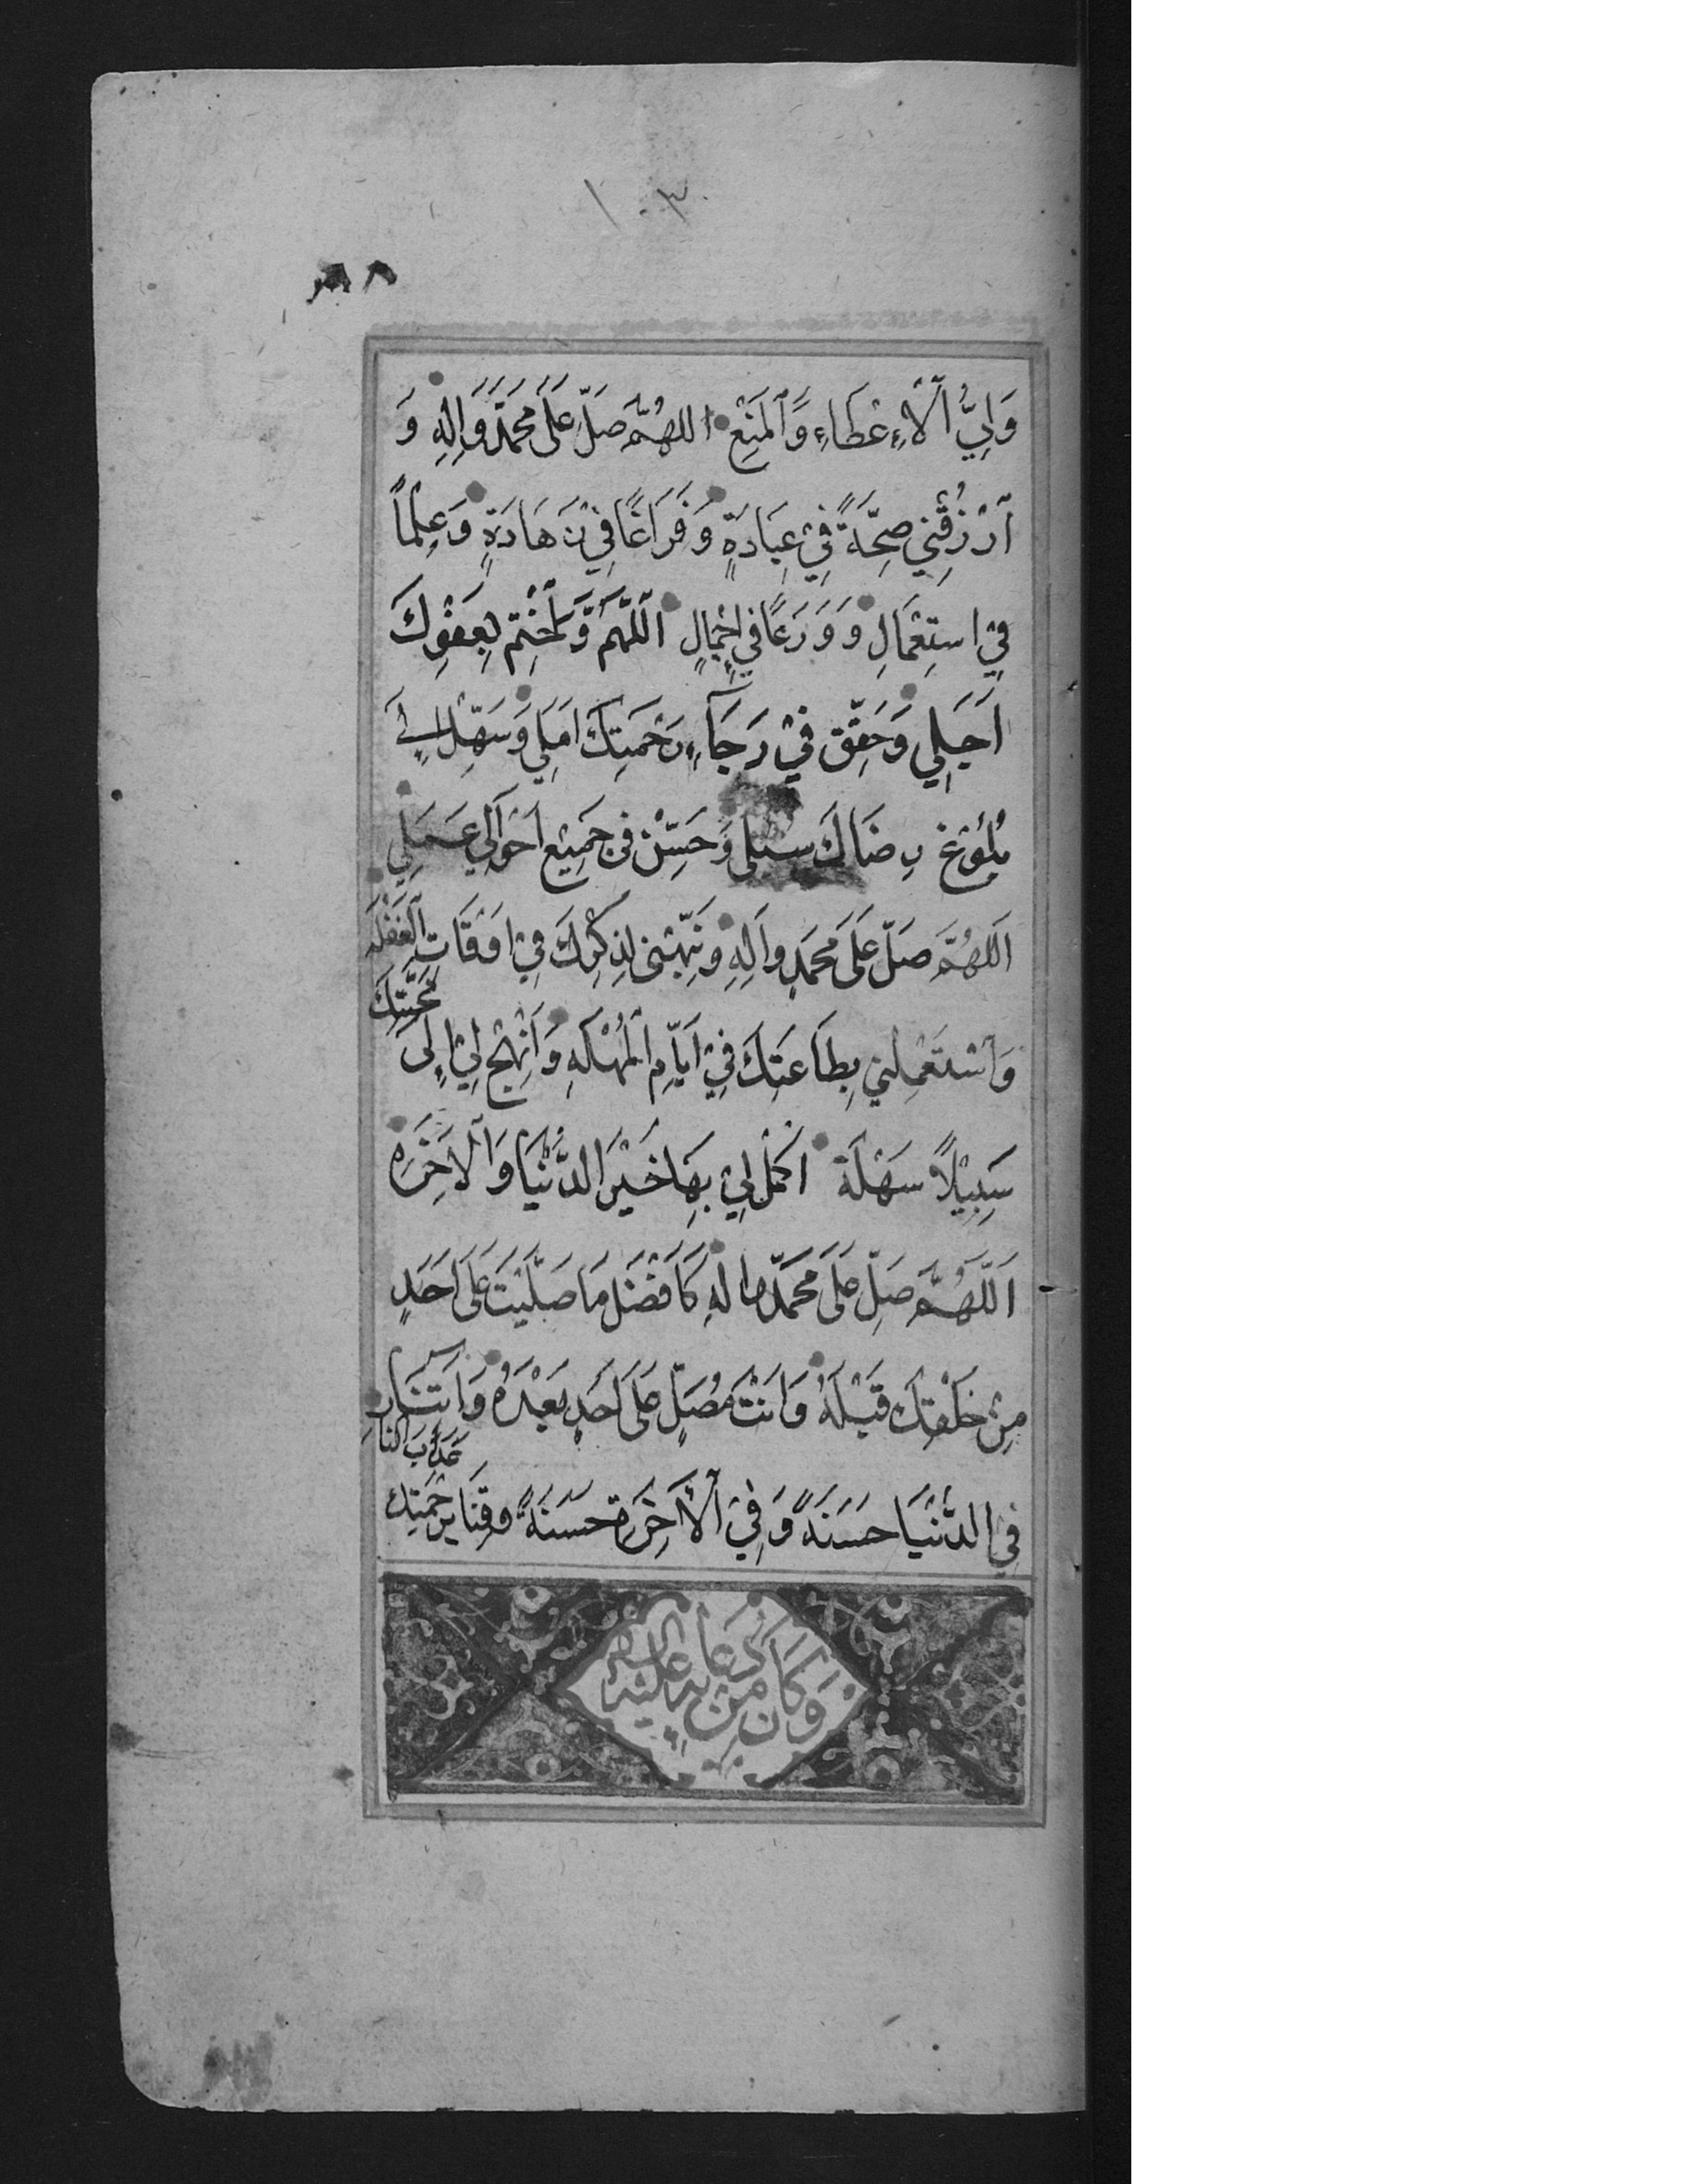 ١٠٣
وَلِيُّ ٱلْاِعْطَاءِ وَٱلْمَنْعِ اللهُمَّ صَلِّ عَلَى مُحَمَّدٍ وَاٰلِهِ وَ
ٱرْزُقْنِي صِحَّةً فِي عِبَادَةٍ وَفَرَاغًا فِي زَهَادَةٍ وَعِلْمًا
فِي اسْتِعْمَالٍ وَوَرَعًا فِي اِجْمَالٍ اَللّٰهُمَّ وَاخْتِمْ بِعَفْوِكَ
اَجَلِي وَحَقِّقْ فِي رَجَآءِ رَحْمَتِكَ اَمَلِي وَسَهِّلْ اِلَى
بُلُوْغِ رِضَاكَ سبلى وَحَسِّنْ فِى جَمِيْعِ اَحْوَالِي عَمَلِي
اَللهُمَّ صَلِّ عَلَى مُحَمَّدٍ واٰلِهِ وَنَبِّهْنِى لِذِكْرِكَ فِي اَوْقَاتِ الْغَفْلَةِ
وَٱسْتَعْمِلْنِي بِطَاعَتِكَ فِي اَيَّامِ الْمُهْلَةِ وَانْهَجْ لِيْ اِلَى
مَحَبَّتِكَ
سَبِيْلًا سَهْلَةً اَكْمِلْ لِي بِهَا خَيْرَ الدُّنْيَا وَٱلْاٰخِرَةِ
اَللّٰهُمَّ صَلِّ عَلَى مُحَمَّدٍ واٰلِهِ كَاَفْضَلِ مَا صَلَّيْتَ عَلَى اَحَدٍ
مِنْ خَلْقِكَ قَبْلَهُ وَاَنْتَ مُصَلٍّ عَلَى اَحَدٍ بَعْدَهُ وَاٰتِنَا
فِي الدُّنْيَا حَسَنَةً وَفِي ٱلْاٰخِرَةِ حَسَنَةً وَقِنَا بِرَحْمَتِكَ
عَذَابَ النَّارِ
وَكَانَ مِنْ دُعَائِهِ عَلَيْهِ السلم